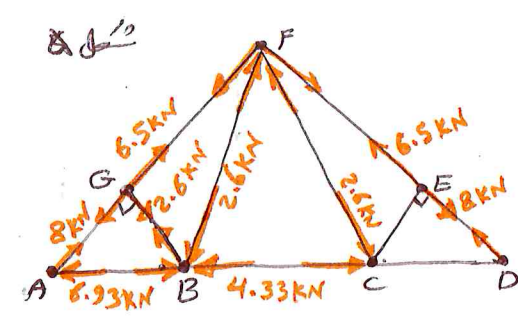 F
6.5KN
6.5KN
G
2.6KN
2.6KN
2.6KN
E
8KN
8KN
A
6.93KN
B
4.33KN
C
D